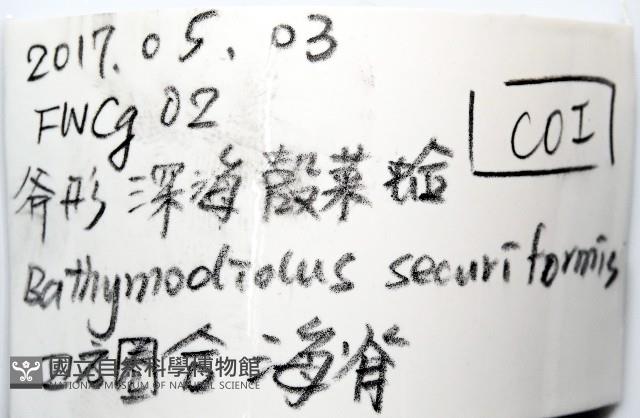 2017.05.03
FWCg 02
COI
斧形深海殼菜蛤
Bathymodiolus securiformis
海脊
國立自然科學博物館
NATIONAL MUSEUM OF NATURAL SCIENCE